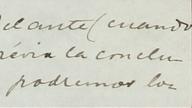 delante (cuando
révia la conclu
podremos los